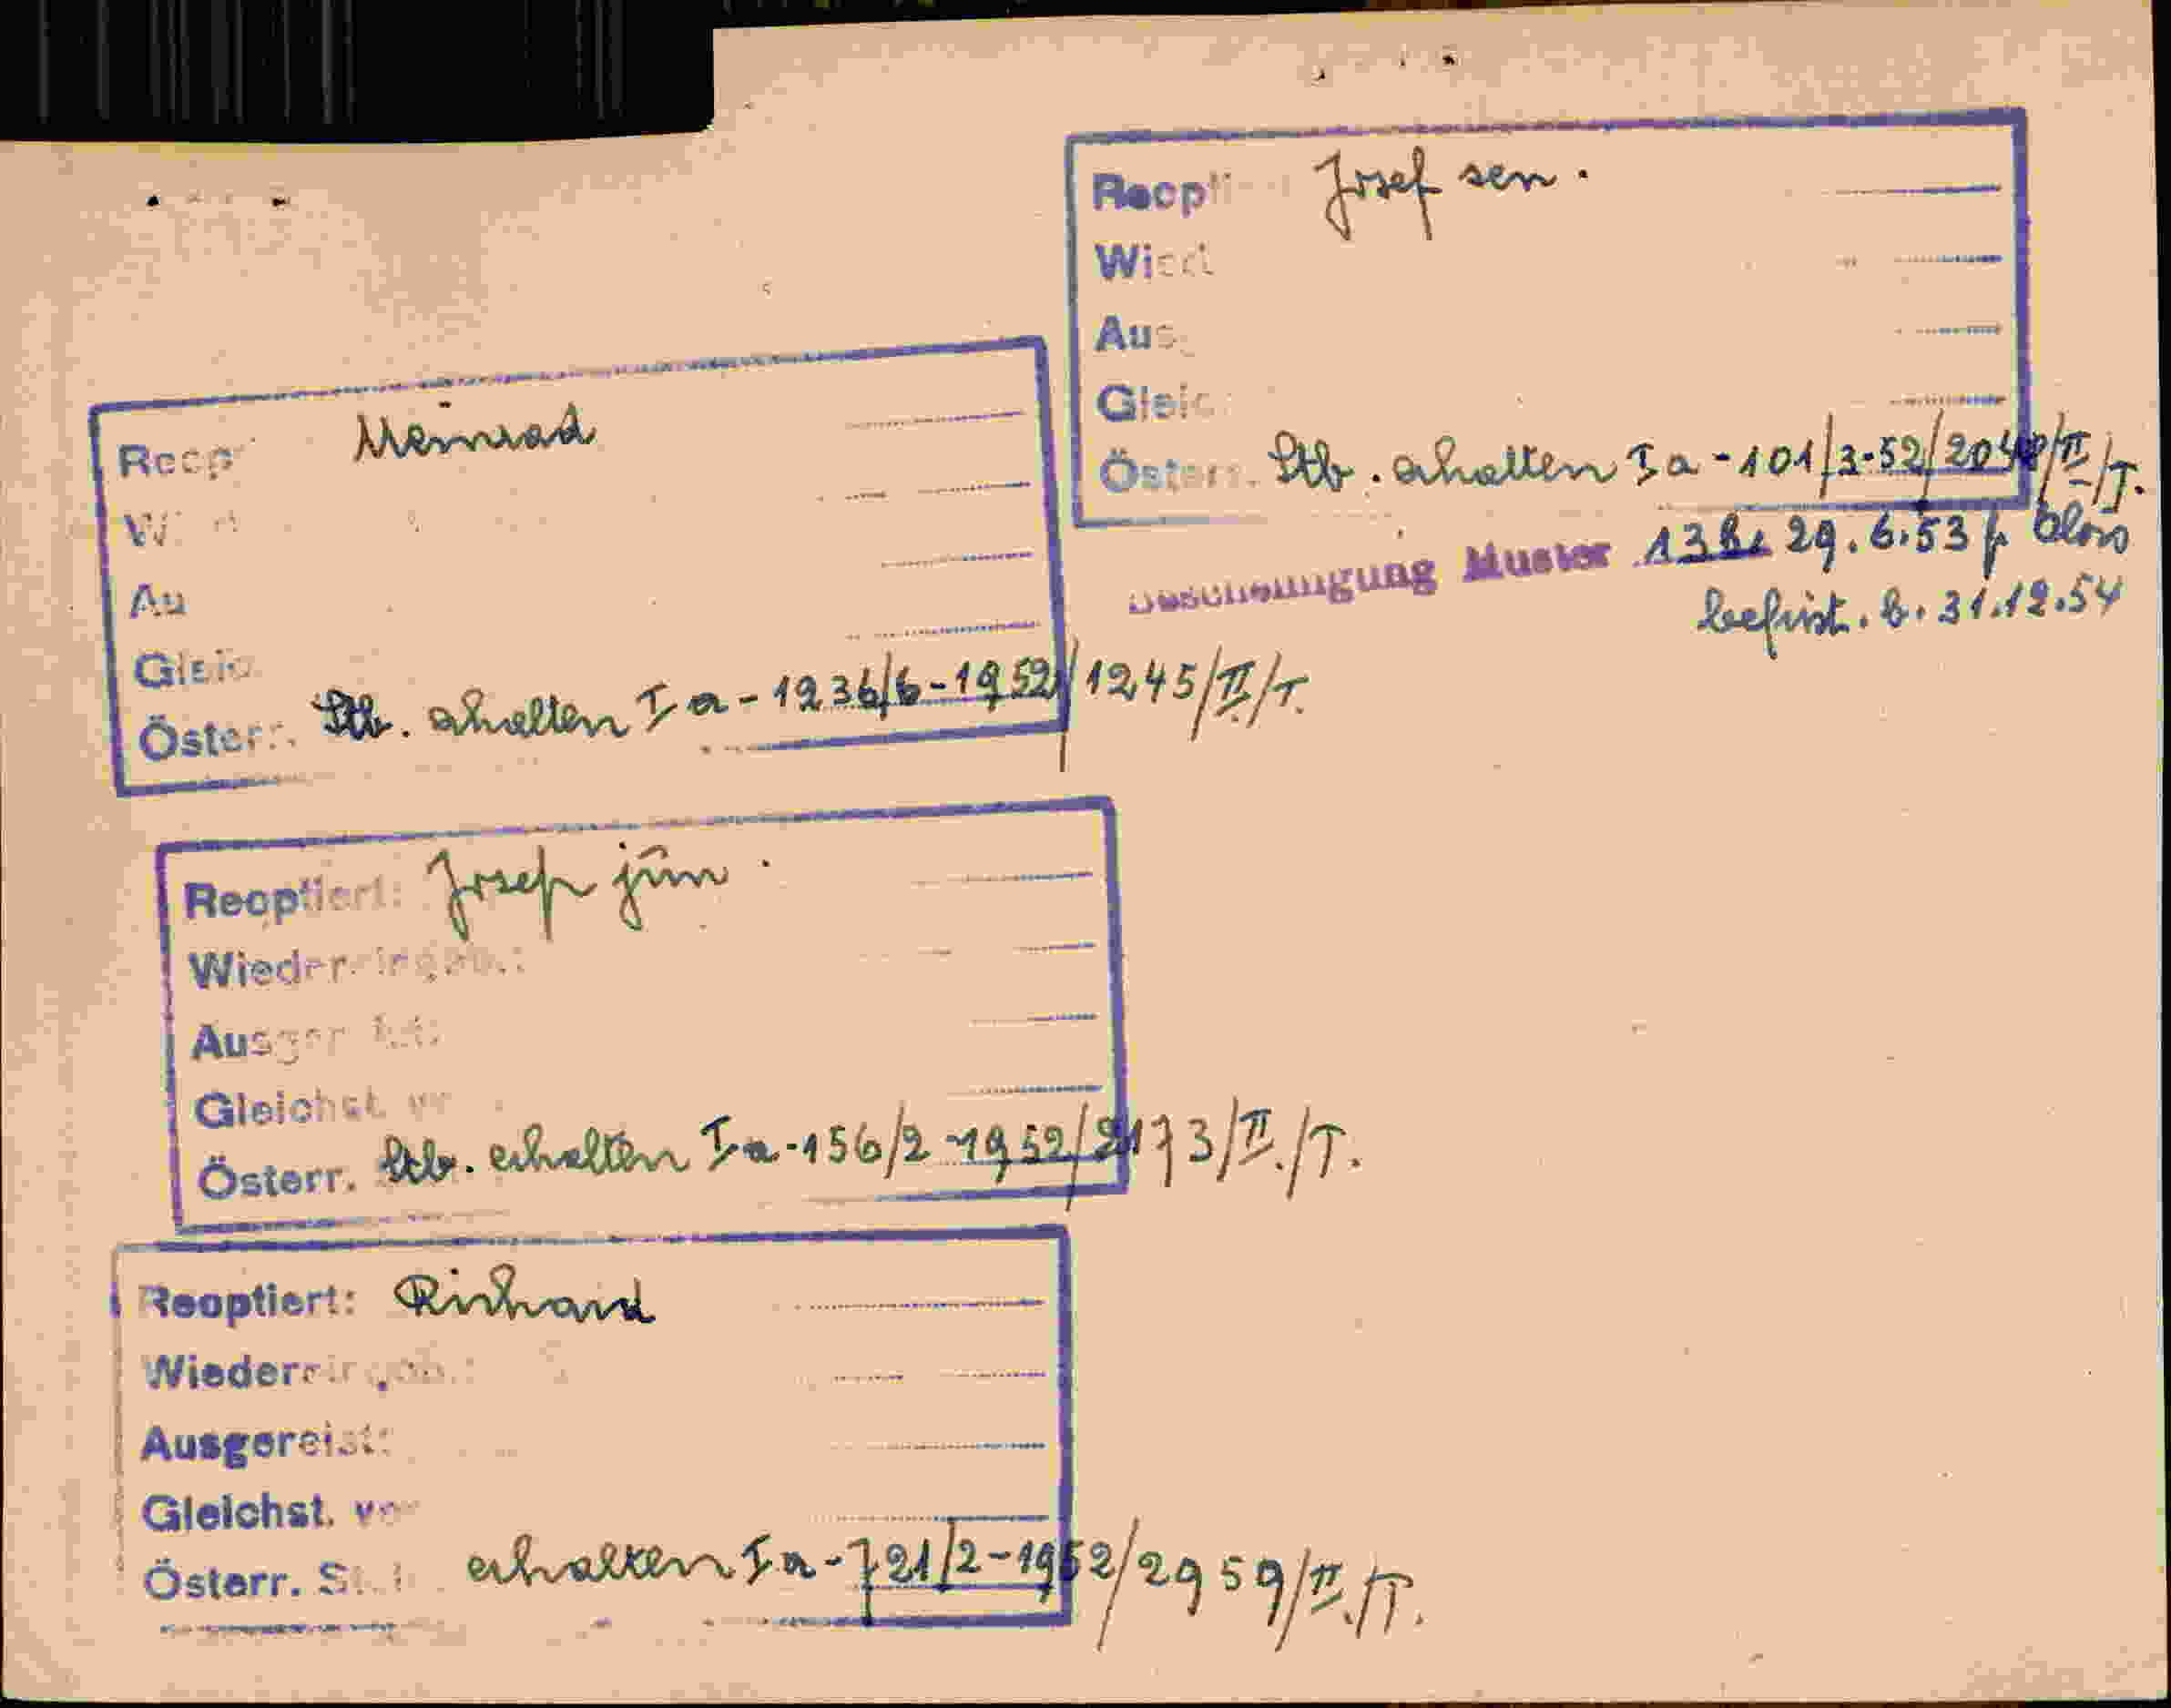 Reopti Josef sen.
Wied
Aus
Gleic
Österr. Stb. erhalten I a - 101/3-52/2048/II/T.
Bescheinigung Muster 13 b, 29.6.53 f. Alois
befrist. b. 31.12.54
Reop Meinrad
W
Au
Gleic
Österr. Stb. erhalten I a - 1236/6-1952/1245/II/T.
Reoptiert: Josef jun.
Wiedereingeb.:
Ausgereist:
Gleichst. v
Österr. Stb. erhalten I a - 156/2-1952/2173/II./T.
Reoptiert: Richard
Wiedereingeb.:
Ausgereist:
Gleichst. v
Österr. St. erhalten I a - 721/2-1952/2959/II./T.